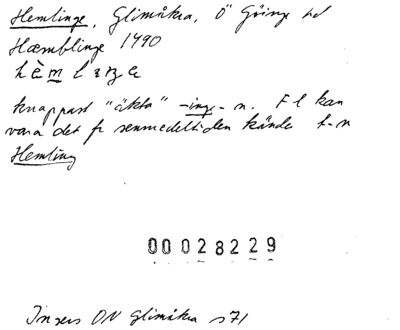 Hemlinge, Glimåkra, Ö Göinge hd
Hæmblinge 1490
hèmlıŋe
knappast "äkta" -inge-n. F l kan
vara det fr senmedeltiden kända t-n
Hemling
00028229
Ingers ON Glimåkra s71